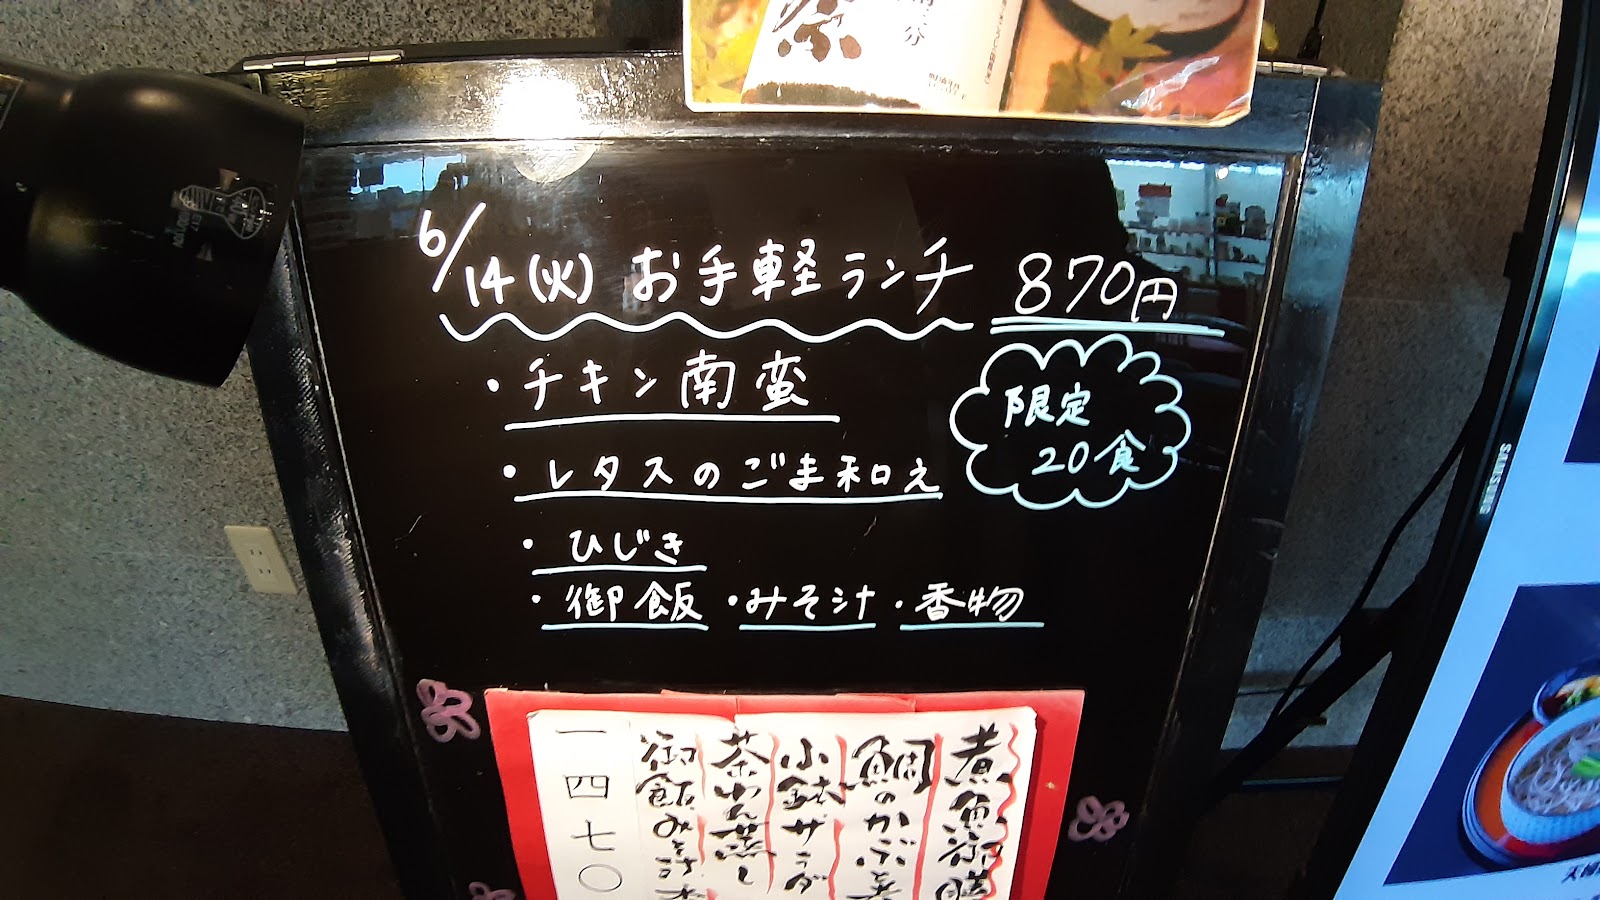 祭
6/14(火) お手軽ランチ 870円
・チキン南蛮
・レタスのごま和え
・ひじき
・御飯・みそ汁・香物
限定
20食
煮魚御膳
鯛のかぶと煮
小鉢サラダ
茶わん蒸し
御飯みそ汁香
一四七〇
SAMSUNG